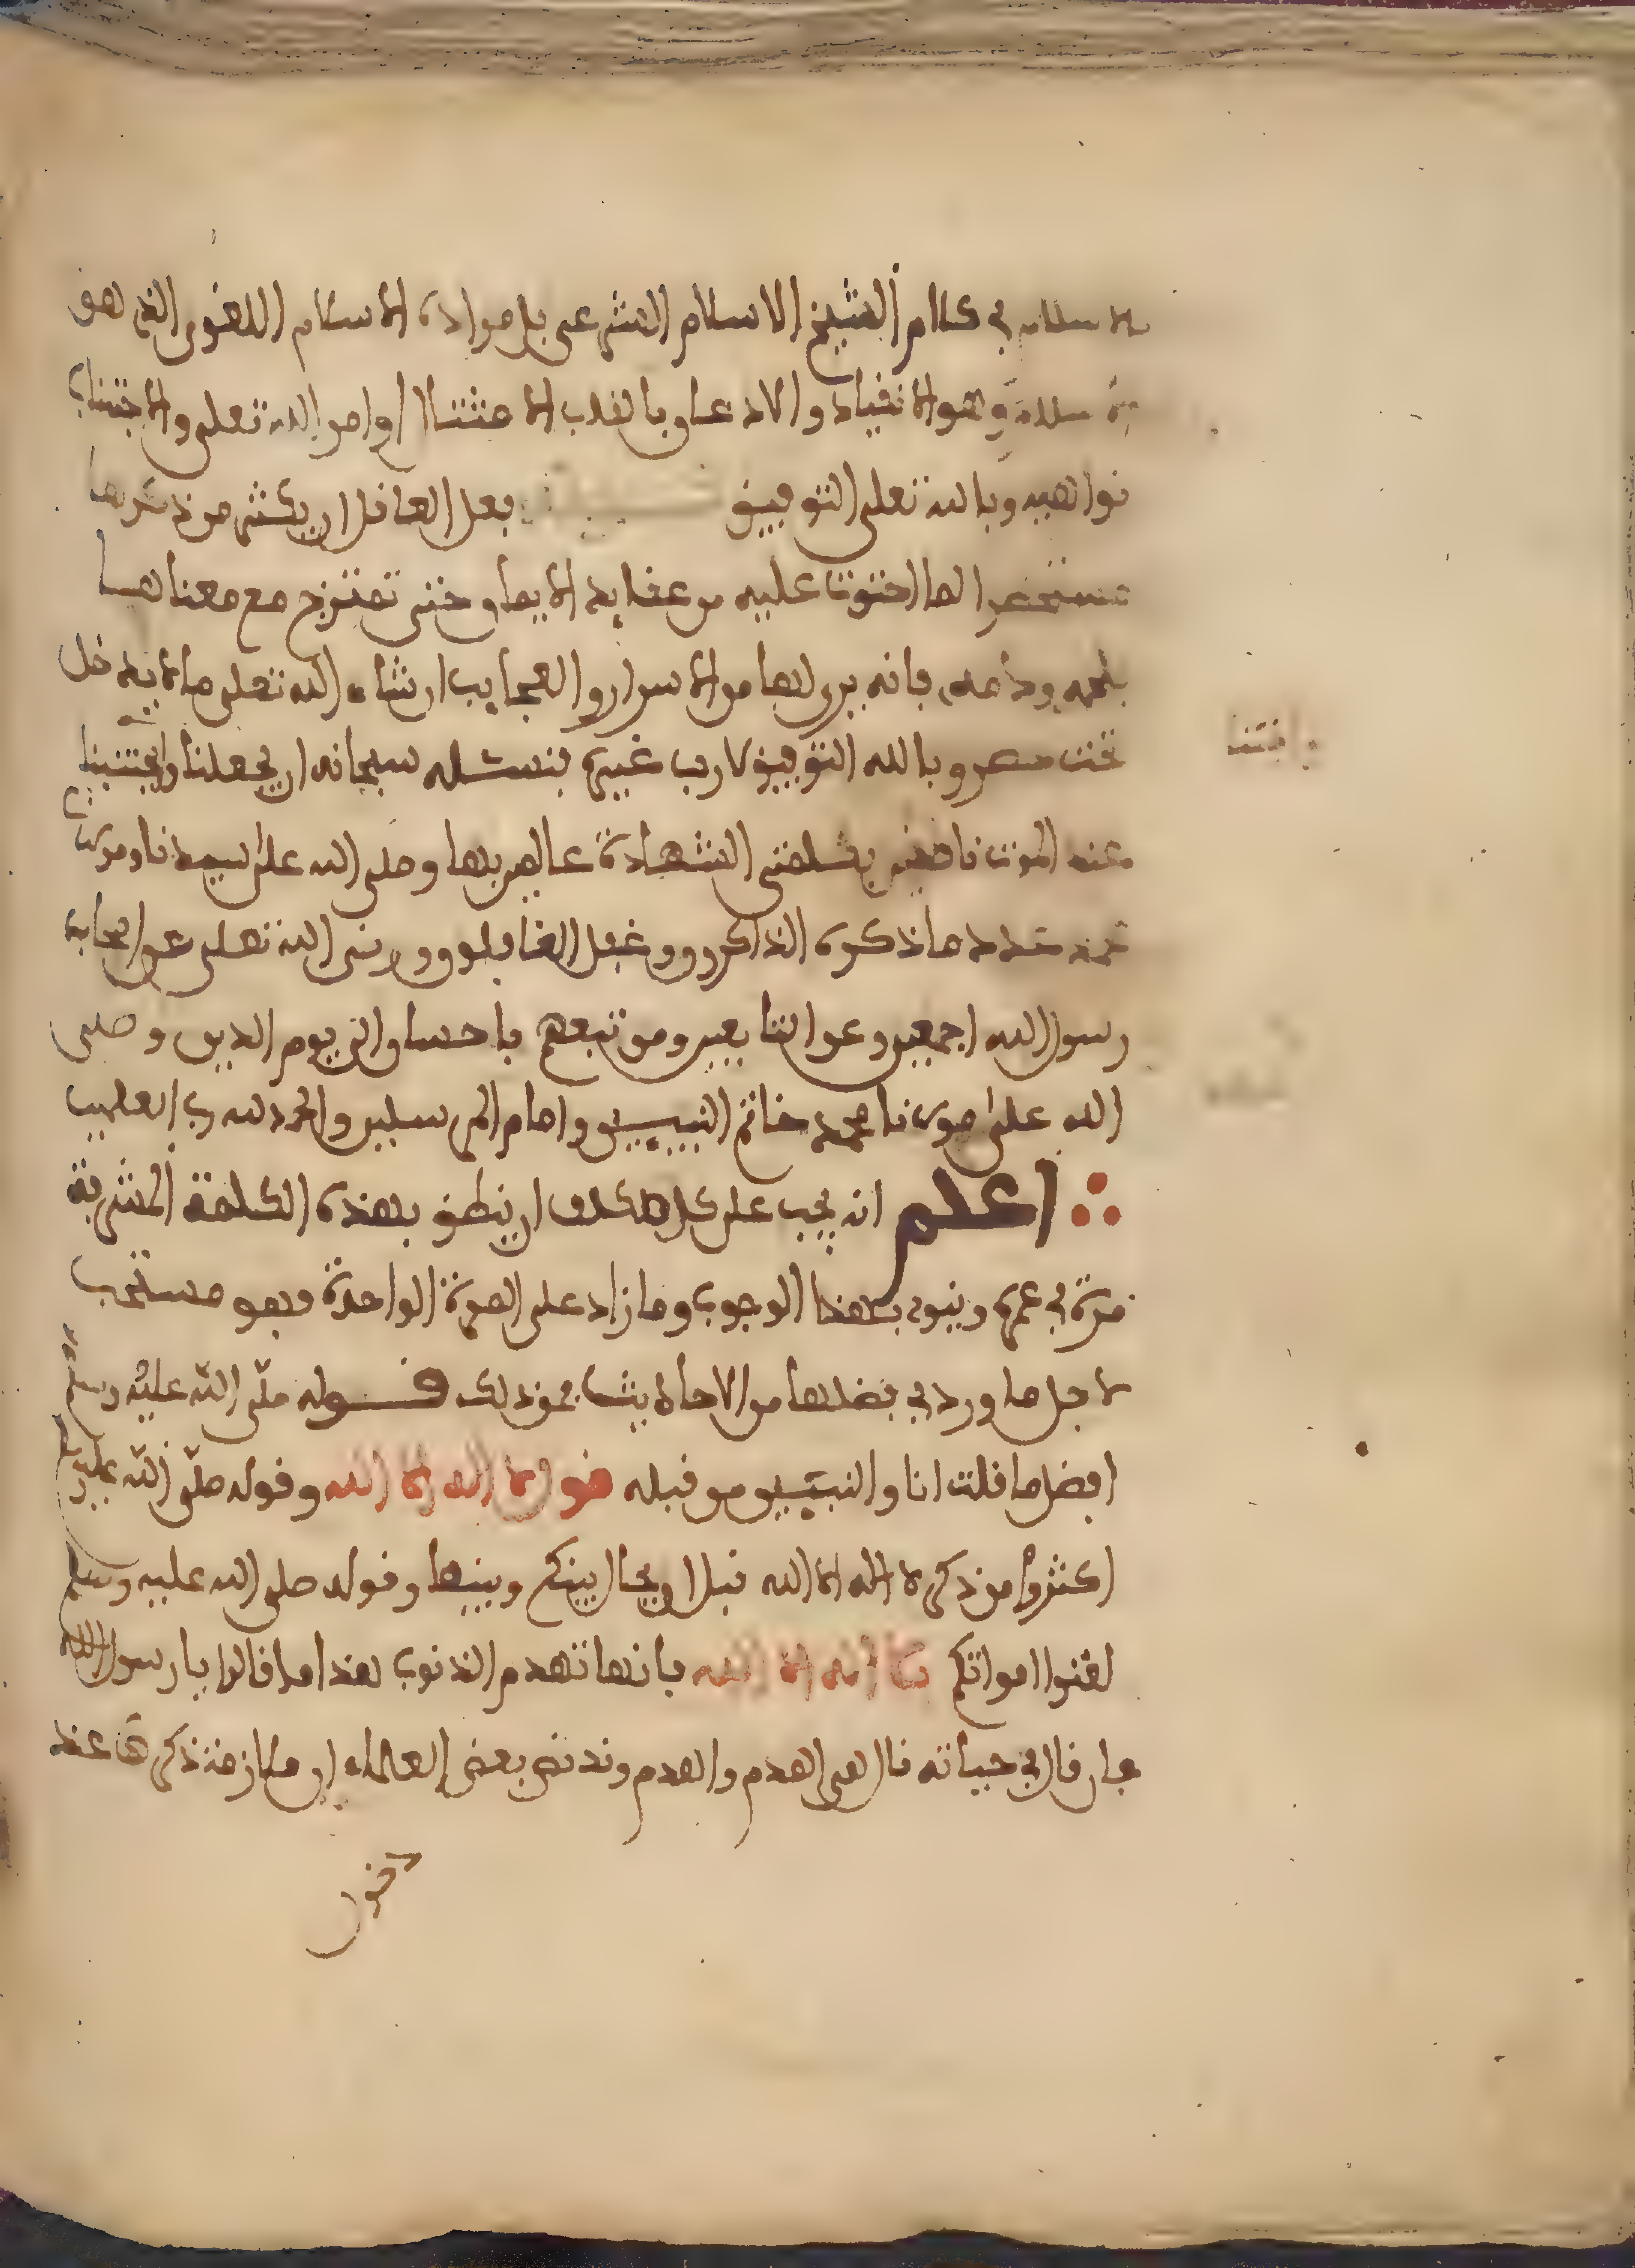 الاسلام في كلام الشيخ الاسلام الشرعي بل مراده الاسلام اللغوي الذي هو
وهو الانقياد والاذعان بالقلب لامتثال اوامر الله تعلى والاجتناب
نواهيه وبالله تعلى التوفيق فعلى العاقل ان يكثر من ذكرها
مستحضرا لما احتوت عليه من عقايد الايمان حتى تمتزج مع معناها
بلحمه ودمه فانه يرى لها من الاسرار والعجايب ان شاء الله تعلى ما لا يدخل
تحت حصر وبالله التوفيق لا رب غيره فنسئله سبحانه ان يجعلنا واحبتنا
عند الموت ناطقين بكلمتي الشهادة عالمين بها وصلى الله على سيدنا ومولانا
محمد عدد ما ذكره الذاكرون وغفل الغافلون ورضي الله تعلى عن اصحاب
رسول الله اجمعين وعن التابعين ومن تبعهم باحسان الى يوم الدين وصلى
الله على مولانا محمد خاتم النبيين وامام المرسلين والحمد لله رب العلمين
اعلم انه يجب على كل مكلف ان ينطق بهذه الكلمة المشرفة
مرة في عمره وينوي بهذا الوجوب وما زاد على المرة الواحدة فهو مستحب
لاجل ما ورد في فضلها من الاحاديث فمن ذلك قوله صلى الله عليه وسلم
افضل ما قلت انا والنبيون من قبله قول لا اله الا الله وقوله صلى الله عليه وسلم
اكثروا من ذكر لا اله الا الله قبل ان يحال بينكم وبينها وقوله صلى الله عليه وسلم
لقنوا امواتكم لا اله الا الله فانها تهدم الذنوب هدما قالوا يا رسول الله
فان قال في حياته قال هي اهدم واهدم وقد نص بعض العلماء ان ملازمة ذكرها عند
وافتنا